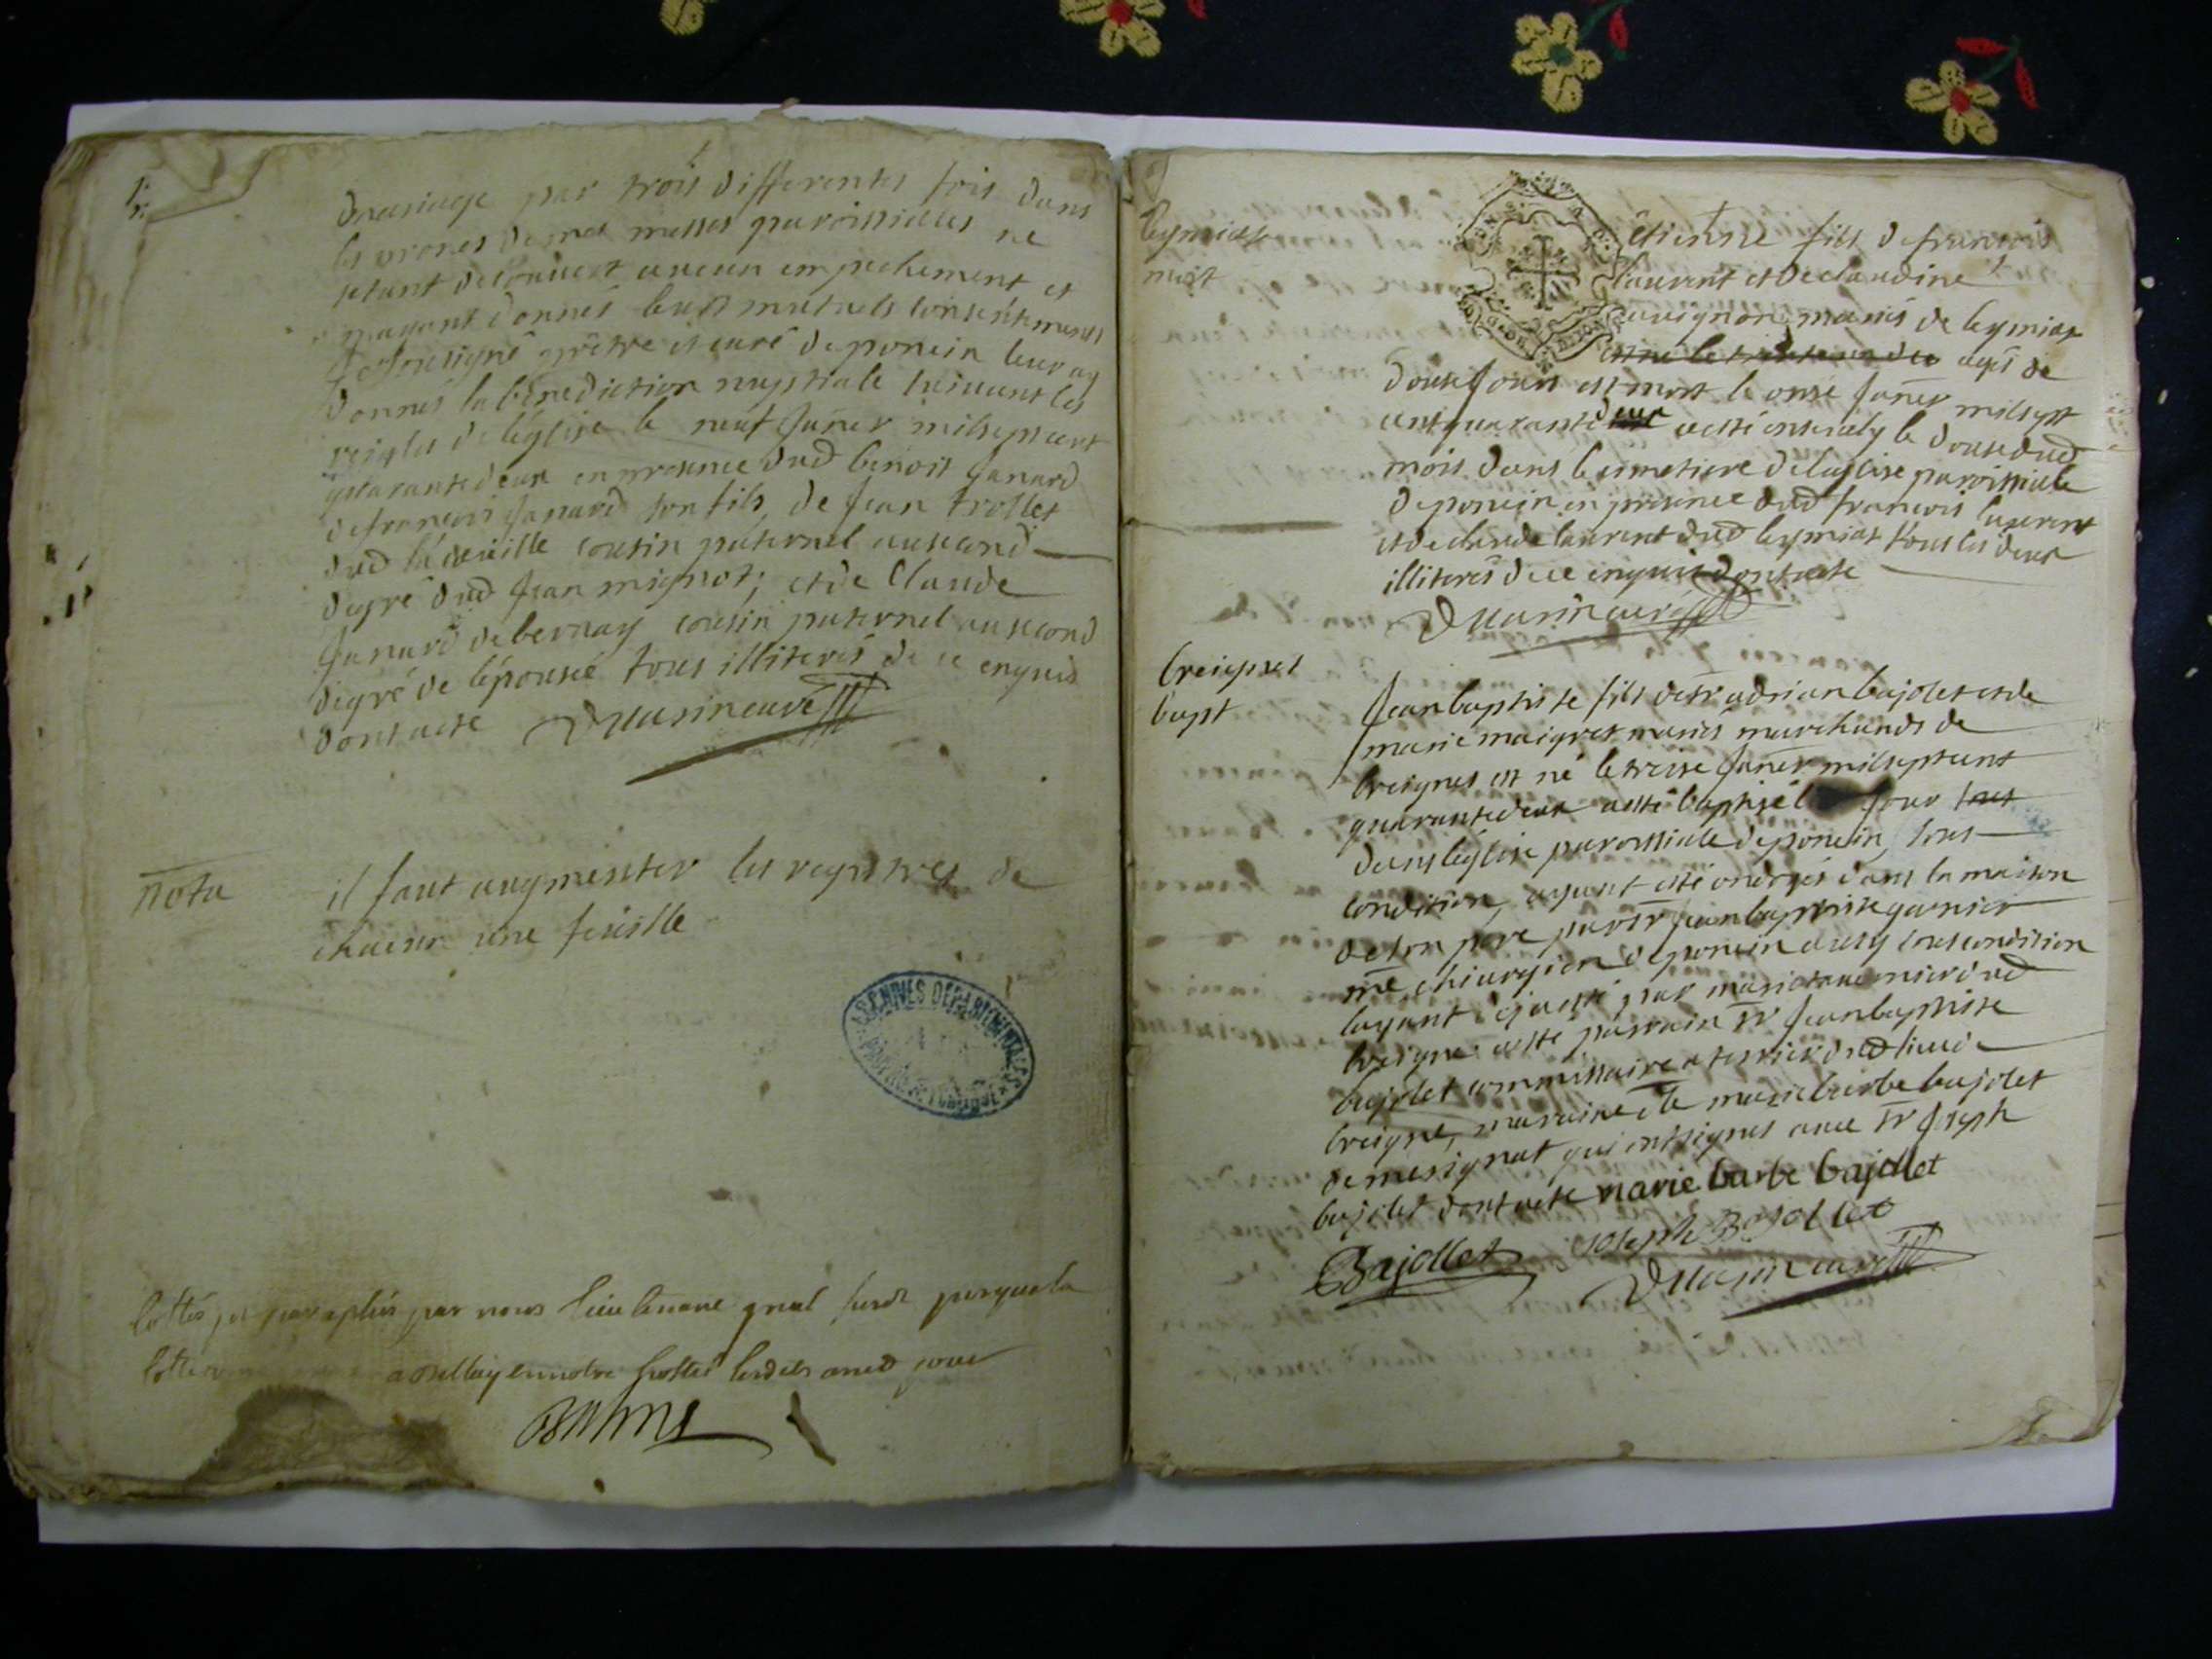 de mariage par trois differentes fois dans
les prones de mes messes paroissialles ne
setant decouvert aucun empechement et
mayant donnés leurs mutuels consentements
Je soussigné prêtre et curé de poncin leur ay
donnés la bénédiction nuptiale suivant les
reigles de léglise le neuf janer milsept cent
quarantedeux en presence dud benoit janard
de francois janard son fils, de jean trollet
dud cousin paternel ausecond
degré dud jean mignot; et de Claude
janard debernay cousin paternel ausecond
degré de lépousée tous illiterés de ce enquis
dont acte curé
nota
il faut augmenter les registres de
chacun une feuille
ARCHIVES DEPARTEMENTALES
Cottés et paraphés par nous lieutenant gnal
a Belley en notre hostel lesdits an et jour
leymiat
mort
étienne fils de francois
laurent et de claudine
avignon mariés de leymiat
agés de
douse jours est mort le onse janer milsept
cent quarante deux aesté ensevely le douse dud
mois dans le cimetiere de léglise paroissialle
deponcin en presence dud francois laurent
et de claude laurent dud leymiat tous les deux
illiterés de ce enquis dont acte
curé
breignes
bapt
Jean baptiste fils de sr adrian bajolet et de
marie maigret mariés marchands de
breignes est né le treise janer milseptcent
quarantedeux aesté baptisé jour sous
dans léglise paroissiale deponcin, sous
condition, ayant esté ondoyés dans la maison
de son pere par sr jean baptiste garnier
me chiurgien de poncin aussy sous condition
layant deja esté par marie dud
breigne. aesté parrain sr jean baptiste
bajolet commissaire a terrier dud lieu de
breigne, maraine dlle marie barbe bajolet
de mesignat qui ont signés avec sr joseph
bajolet dont acte marie barbe bajollet
Bajollet joseph Bajollet
curé